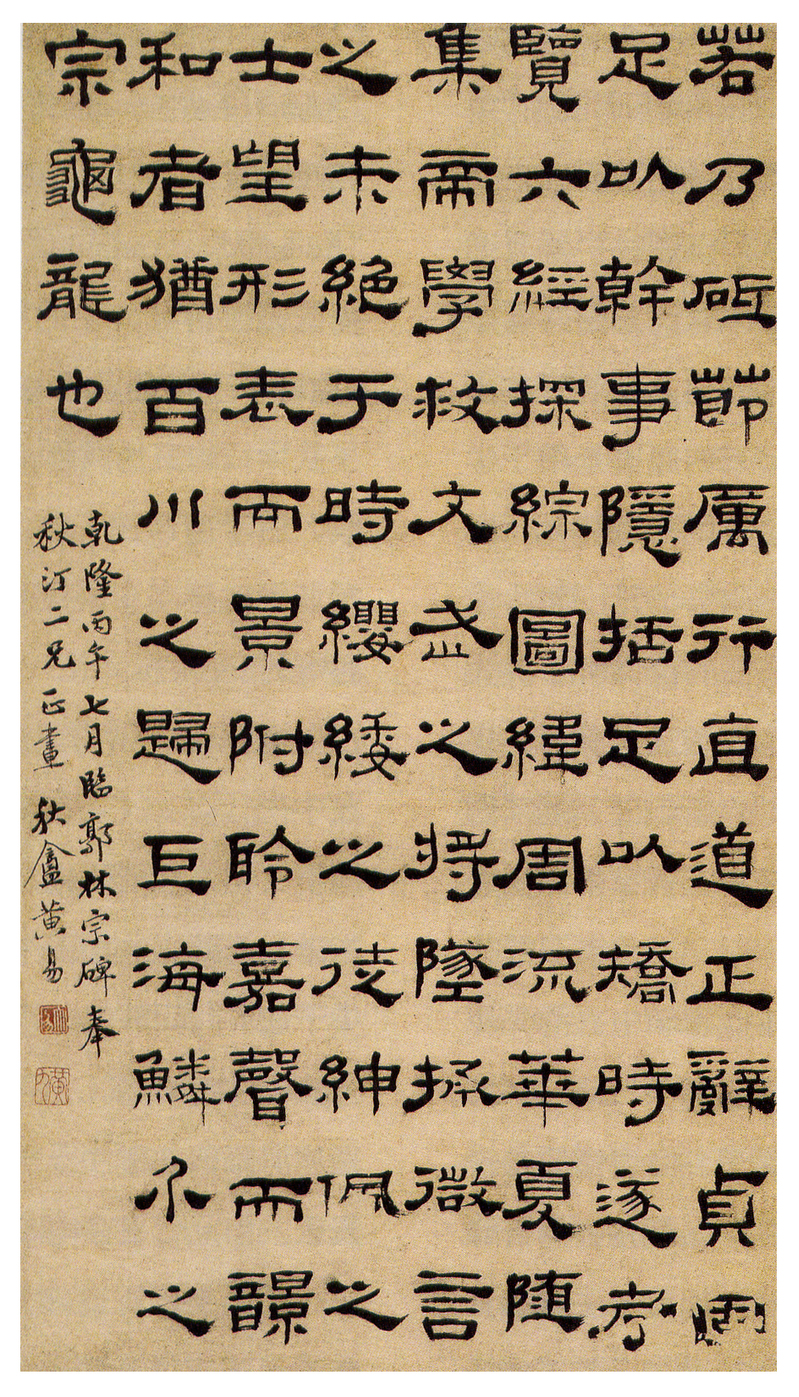 若乃砥節厲行直道正辭貞固
足以幹事隱括足以矯時遂考
覽六經探綜圖緯周流華夏随
集帝學救文武之將墜拯微言
之未絕于時纓緌之徒紳佩之
士望形表而景附聆嘉聲而響
和者猶百川之歸巨海鱗介之
宗龜龍也
乾隆丙午七月臨郭林宗碑奉
秋汀二兄正畫 秋盦黃易